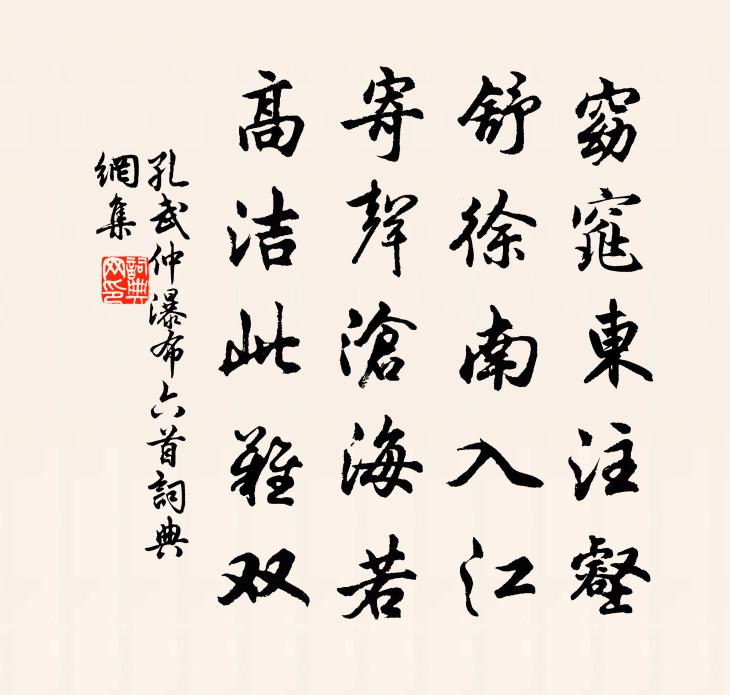 窈窕東注壑
舒徐南入江
寄聲滄海若
高洁此難双
孔武仲瀑布六首詞典
網集
詞典網